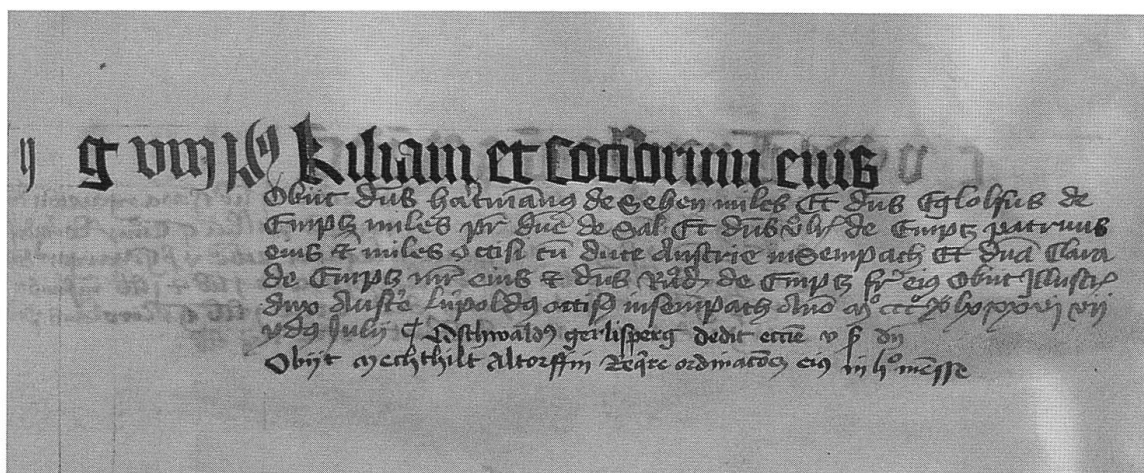 g viii Id Kiliani et sociorum eius
Obiit dns hartmanus de Sehen miles Et dns Eglolfus de
Emptz miles pr dne de Sal Et dns Ulr de Emptz patruus
eius & miles occisi cu duce Austrie in Sempach Et dna Clara
de Emptz mr eius & dns Rud de Emptz fr eius Obiit Illustr
dux Austr Lupoldus occisus in sempach Anno mo ccco lxxxvi vii
ydus Julii Oschwaldus gerlisperg dedit eccie v ß dn
Obijt Mechthilt Altorffin Reqre ordinacoem eius in ho mensse